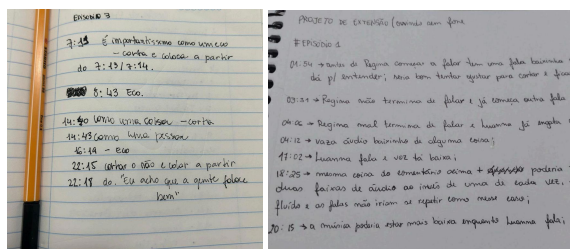 EPISODIO 3
7:13 é importantissimo como um eco
- corta e coloca a partir
do 7:13/7:14.
8:43 Eco.
14:40 como uma coisa - corta
14:43 como uma pessoa
16:14 - Eco
22:15 cortar o não e colar a partir
22:18 do. "Eu acho que a gente falou
bem"
PROJETO DE EXTENSÃO (ouvindo com fone
# EPISÓDIO 1
01:54 → antes de Regina começar a falar tem uma fala baixinha
dá p/ entender; seria bom tentar ajustar para cortar e ficar
03:31 → Regina não termina de falar e já começa outra fala
04:06 → Regina mal termina de falar e Luanna já engata
04:12 → vaza áudio baixinho de alguma coisa;
17:02 → Luanna fala e voz tá baixa;
18:25 → mesma coisa do comentário acima + poderia
duas faixas de áudio ao invés de uma de cada vez,
fluido e as falas não iriam se repetir como nesse caso;
20:15 → a música poderia estar mais baixa enquanto Luanna fala;